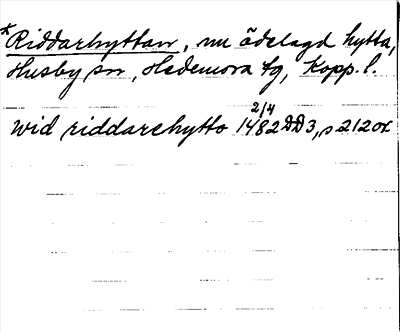 *Riddarhyttan, nu ödelagd hytta,
Husby sn, Hedemora tg, Kopp. l.
2/4
wid riddarehytto 1482 DD3, s 212 or.